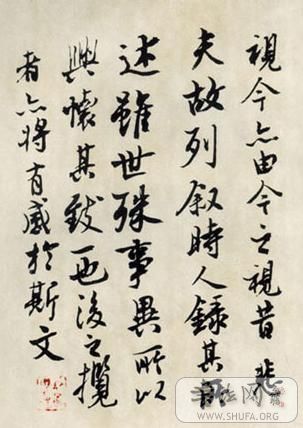 視今亦由今之視昔悲
夫故列叙時人錄其所
述雖世殊事異所以
興懷其致一也後之攬
者亦將有感於斯文
书法网
WWW.SHUFA.ORG